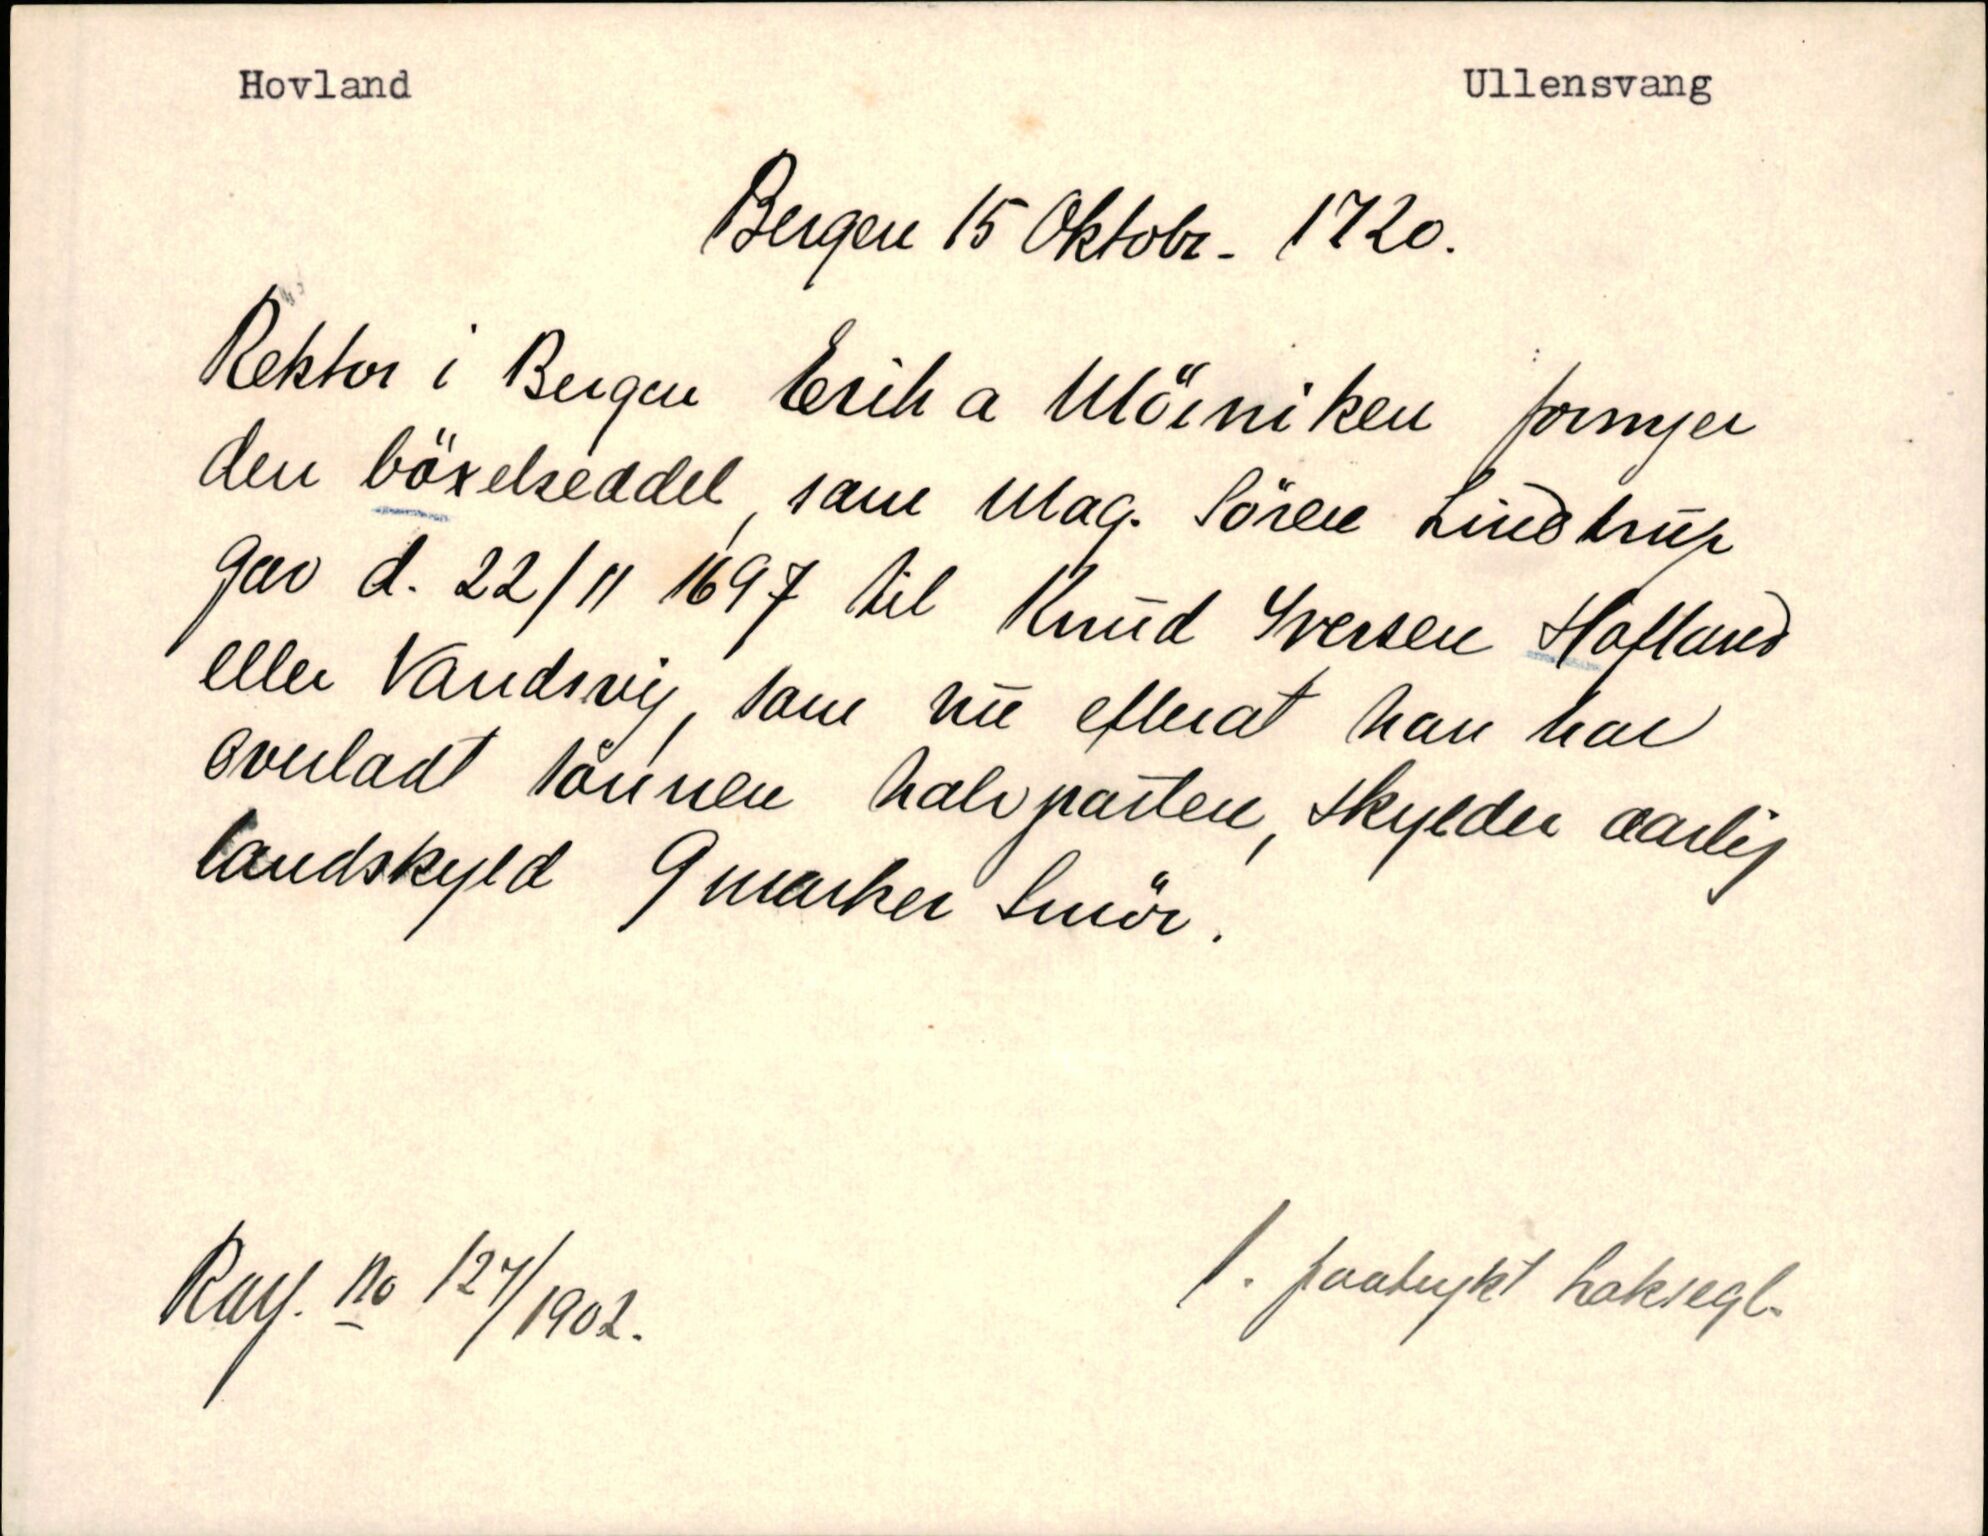 Hovland Ullensvang
Bergen 15 Oktobr. 1720.
Rektor i Bergen Erik a Möiniken fornyer
den böxelseddel, som Mag. Sören Lindtrup
gav d. 22/11 1697 til Knud Iversen Hofland
eller Vandsvig, som nu efterat han har
overladt sönnen halvparten, skylder aarlig
landskyld 9 marker Smör.
No 127/1902. 1. paatrykt laksegl.